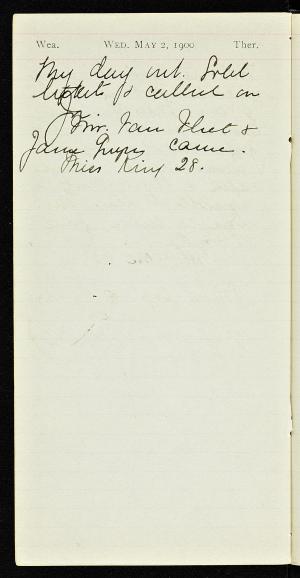 Wea. WED. MAY 2, 1900 Ther.
My day out. Sold
lights & called on
Mr. Van Fleet &
Jane came.
Miss King 28.